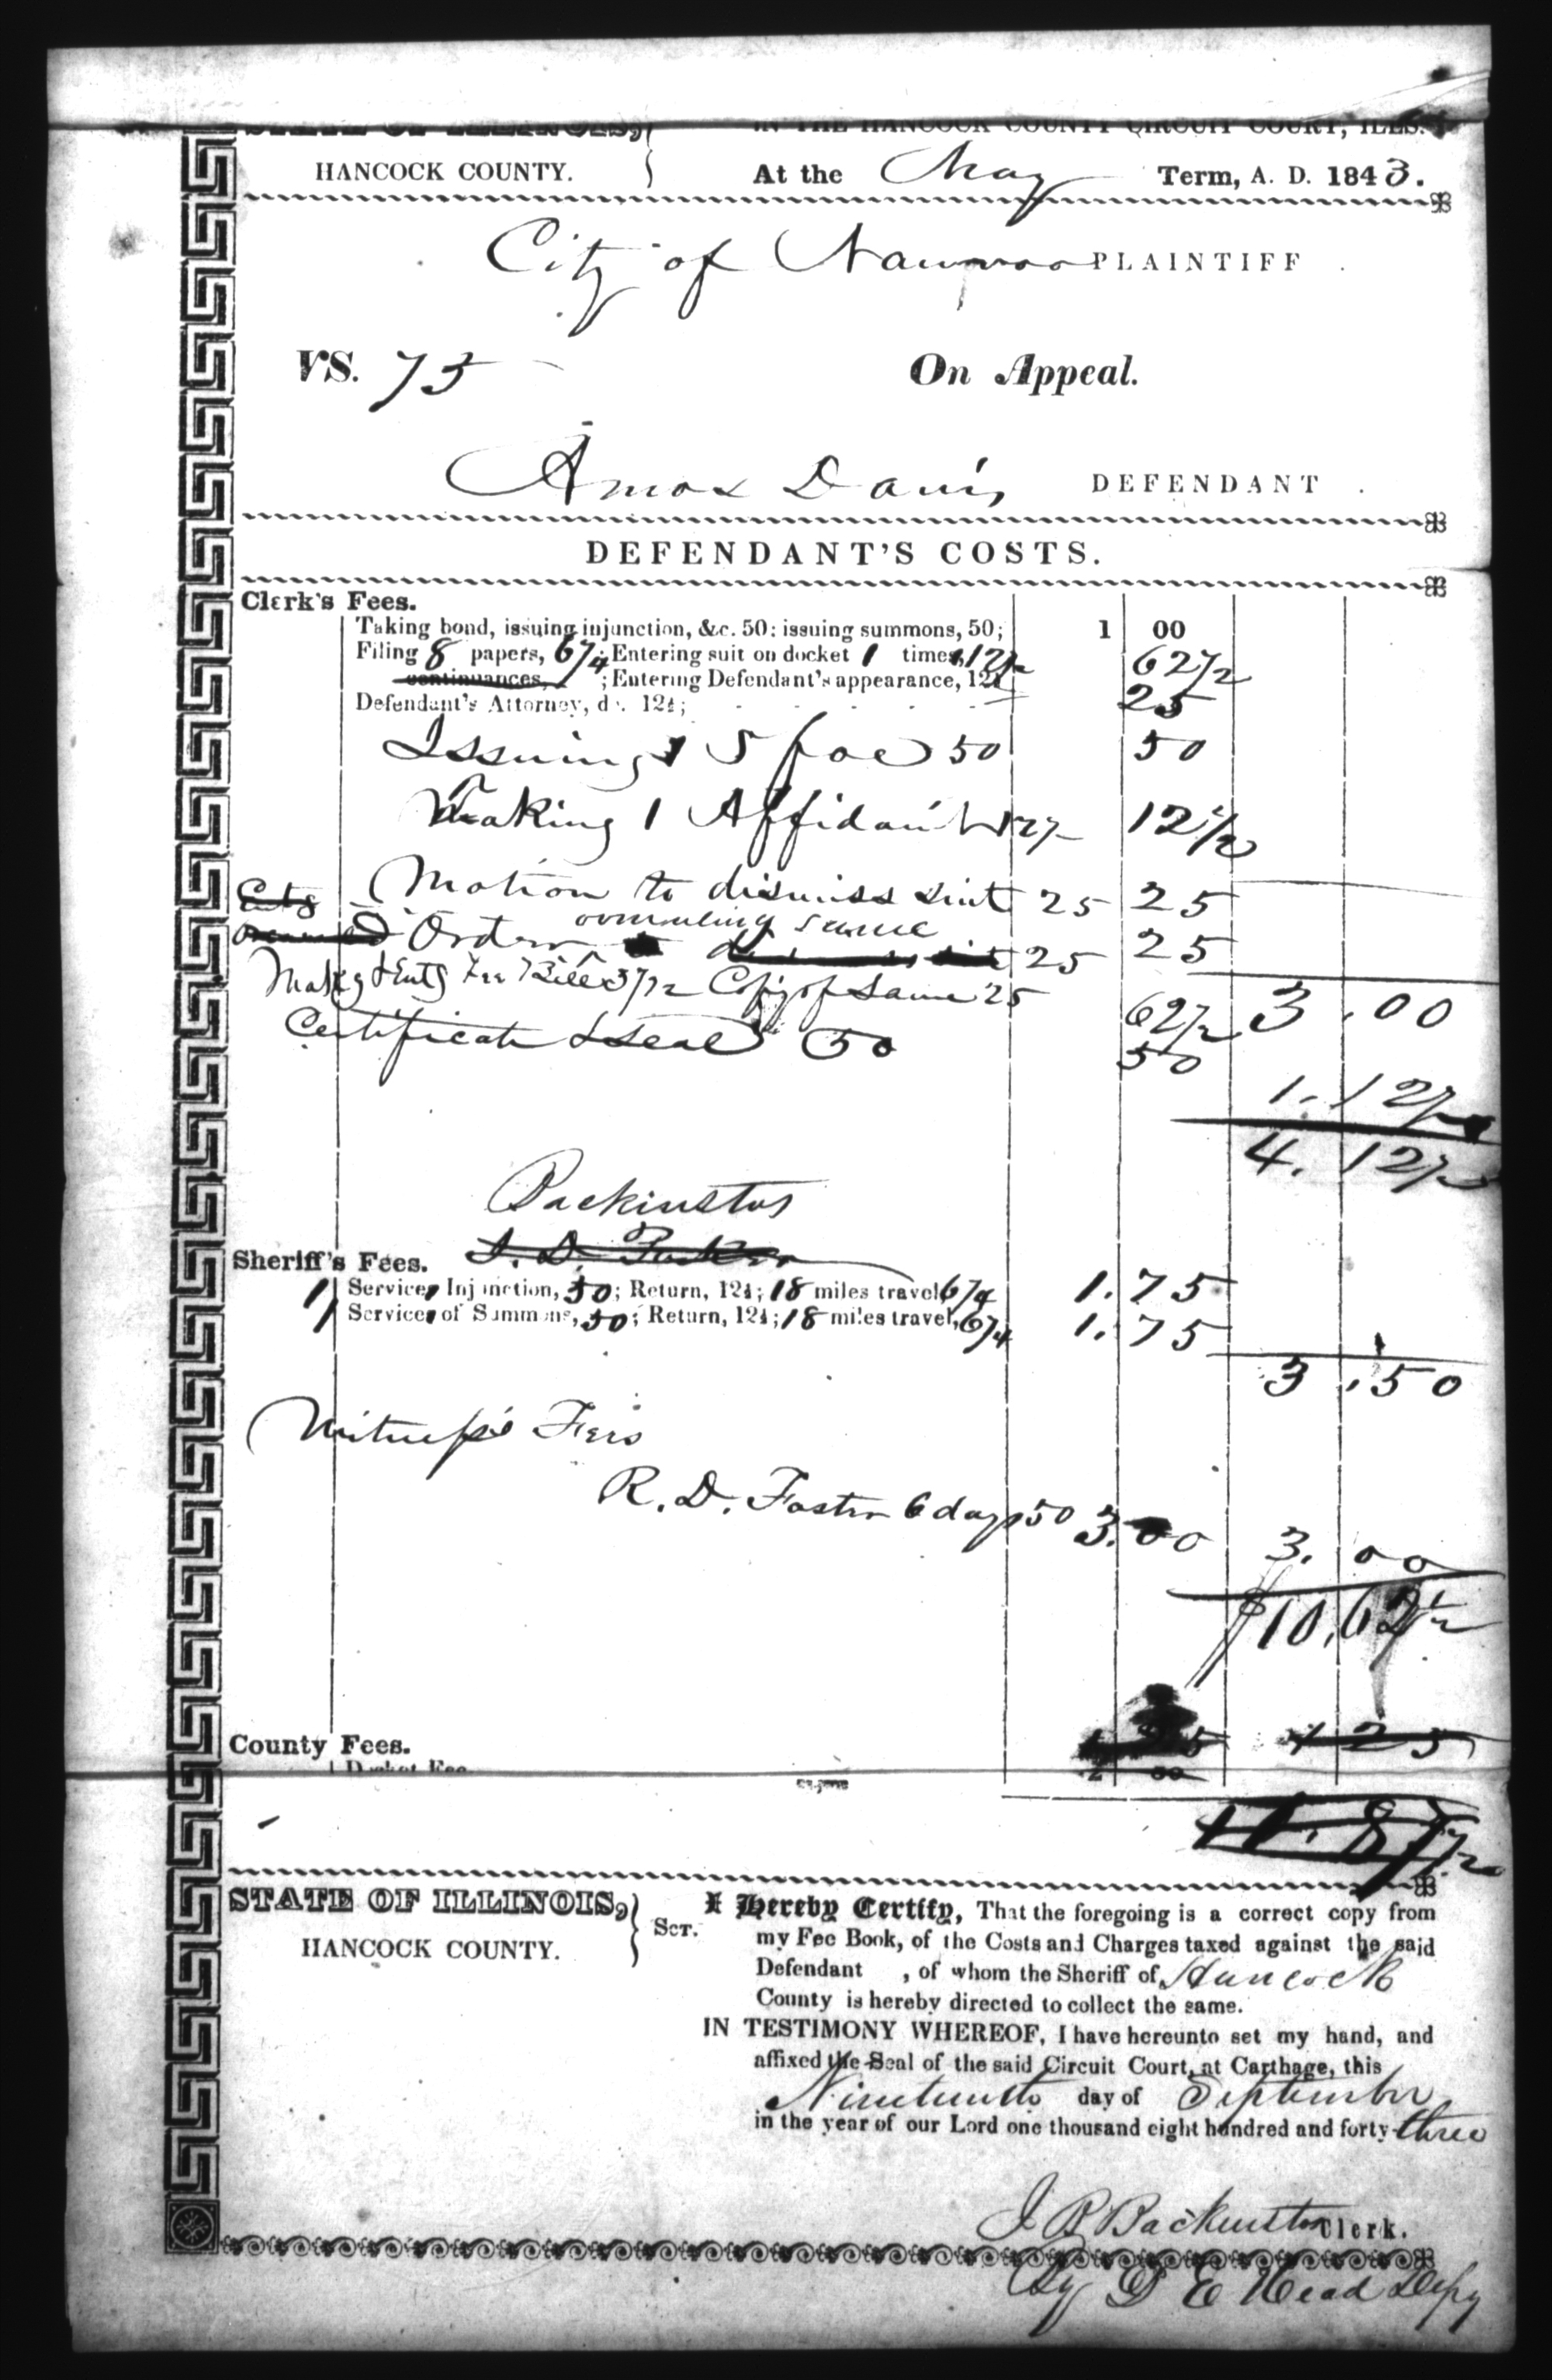 STATE OF ILLINOIS, IN THE HANCOCK COUNTY CIRCUIT COURT, ILLS.
HANCOCK COUNTY. At the May Term, A. D. 1843.
City of Nauvoo PLAINTIFF
VS. 75 On Appeal.
Amos Davis DEFENDANT
DEFENDANT'S COSTS.
Clerk's Fees.
Taking bond, issuing injunction, &c. 50: issuing summons, 50; 1 00
Filing 8 papers, 6/4; Entering suit on docket 1 times, 12/2 62/2
continuances, ; Entering Defendant's appearance, 12½
Defendant's Attorney, do. 12½; 25
Issuing 1 Spoe 50 50
Taking 1 Affidavit 12/2 12 1/2
Entg Motion to dismiss suit 25 25
Order overruling same 25 25
Makg & Entg Fee Bill 37/2 Copy of Same 25 62/2 3.00
Certificate & seal 50 50
1.12/2
4.12/2
Backinstos
Sheriff's Fees.
1 Service, Injunction, 50; Return, 12½; 18 miles travel 6/4 1.75
1 Service of Summons, 50; Return, 12½; 18 miles travel, 6/4 1.75
3.50
Witness's Fees
R. D. Foster 6 days 50 3.00 3.00
$10.62½
County Fees. 1 25
Docket Fee
11.87½
STATE OF ILLINOIS, HANCOCK COUNTY. SCT.
I Hereby Certify, That the foregoing is a correct copy from
my Fee Book, of the Costs and Charges taxed against the said
Defendant , of whom the Sheriff of Hancock
County is hereby directed to collect the same.
IN TESTIMONY WHEREOF, I have hereunto set my hand, and
affixed the Seal of the said Circuit Court, at Carthage, this
Nineteenth day of September
in the year of our Lord one thousand eight hundred and forty-three
J B Backenstos Clerk.
By D E Head Depy